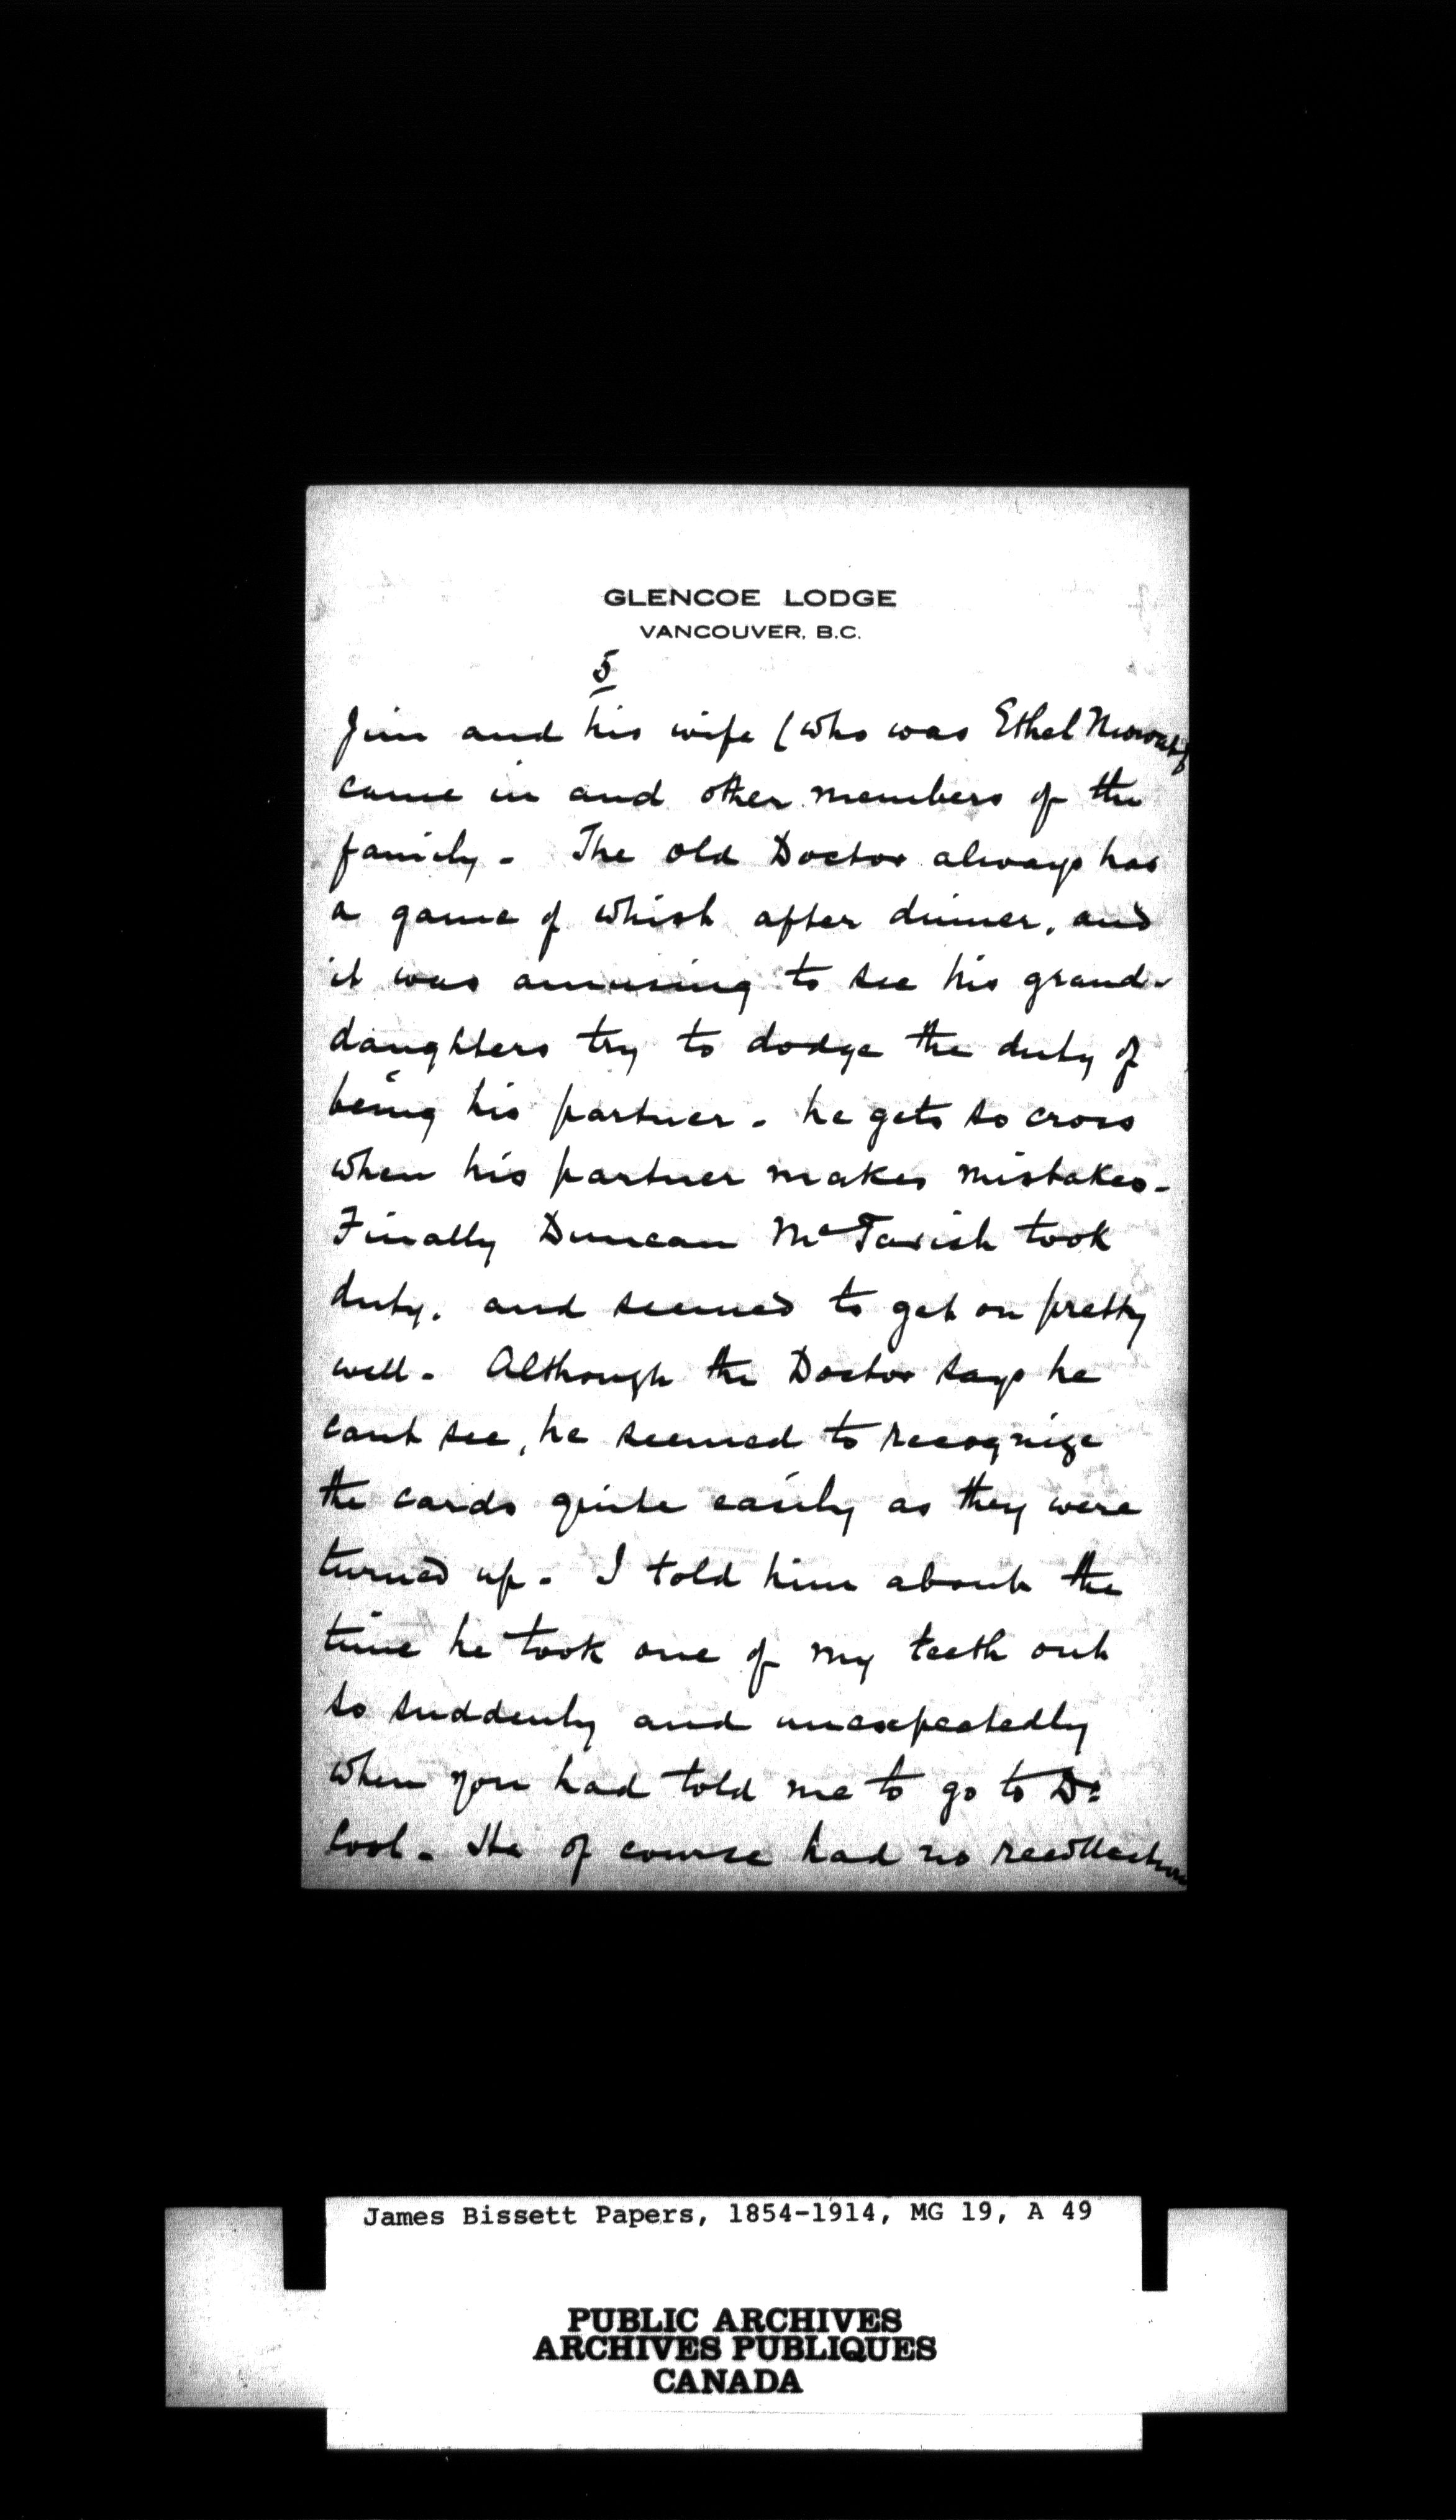 GLENCOE LODGE
VANCOUVER, B.C.
5
Jim and his wife (who was Ethel
came in and other members of the
family - The old Doctor always has
a game of whist after dinner, and
it was amusing to see his grand-
daughters try to dodge the duty of
being his partner - he gets so cross
when his partner makes mistakes -
Finally Duncan McTavish took
duty, and seemed to get on pretty
well - Although the Doctor says he
cant see, he seemed to recognize
the cards quite easily as they were
turned up - I told him about the
time he took one of my teeth out
so suddenly and unexpectedly
when you had told me to go to Dr
He of course had no recollection
James Bissett Papers, 1854-1914, MG 19, A 49
PUBLIC ARCHIVES
ARCHIVES PUBLIQUES
CANADA